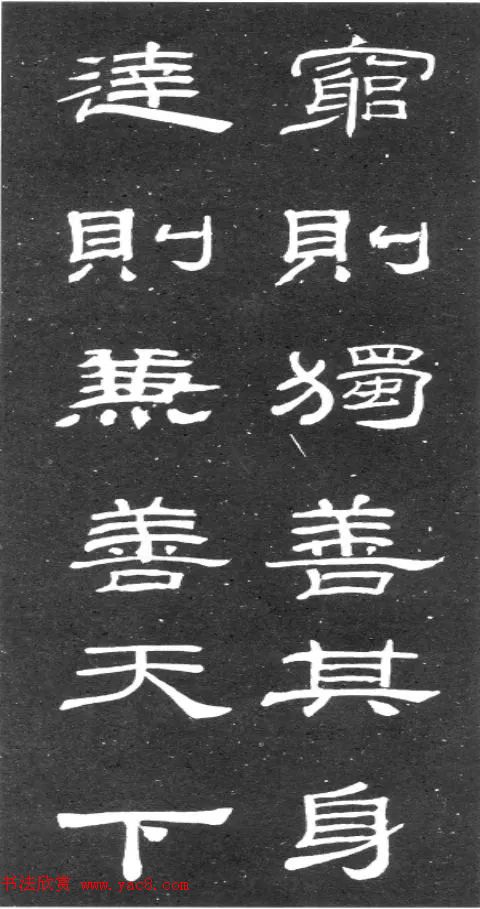 窮則獨善其身
達則兼善天下
书法欣赏 www.yac8.com